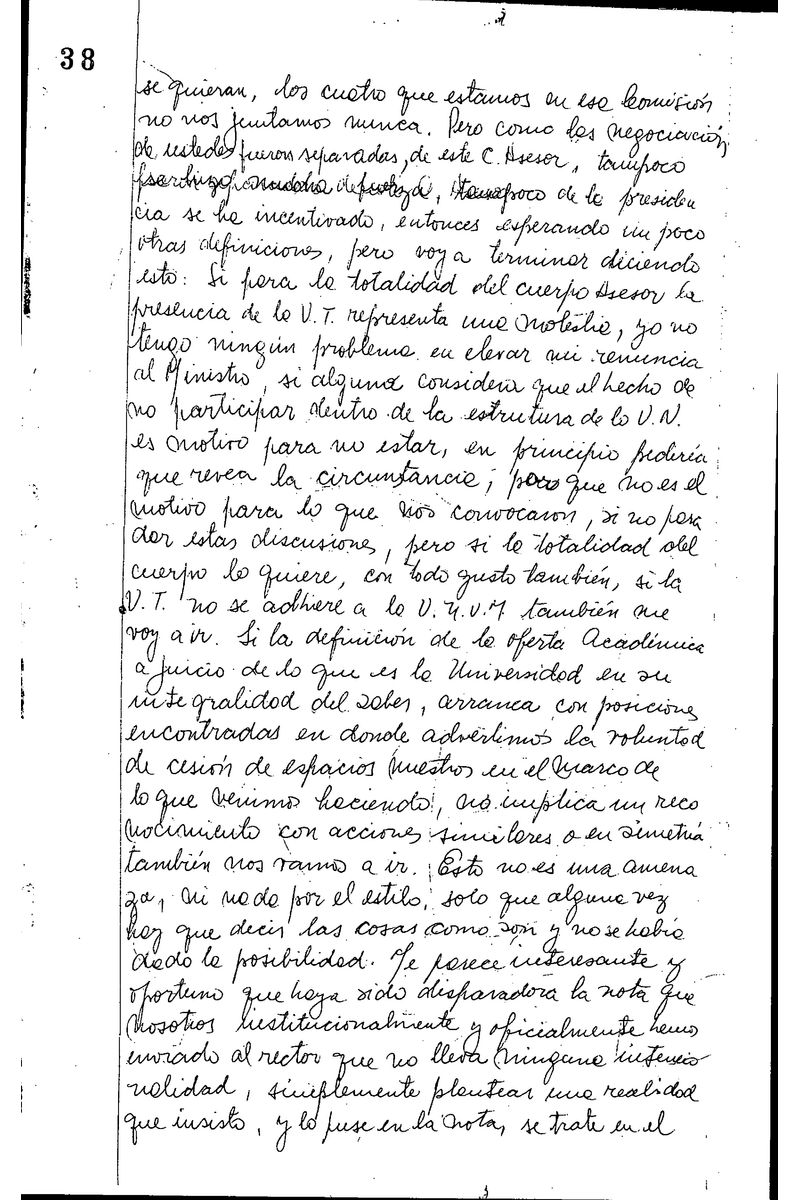 38
se quieran, los cuatro que estamos en esa Comisión
no nos juntamos nunca. Pero como las negociación
de ustedes fueron separadas, de este C. Asesor, tampoco
tampoco de la presiden
cia se ha incentivado, entonces esperando un poco
otras definiciones, pero voy a terminar diciendo
esto: Si para la totalidad del cuerpo Asesor la
presencia de la V.T. representa una molestia, yo no
tengo ningún problema en elevar mi renuncia
al Ministro, si alguna considera que el hecho de
no participar dentro de la estrutura de la U.N.
es motivo para no estar, en principio pediría
que revea la circunstancia; porque no es el
motivo para lo que nos convocaron, si no para
dar estas discusiones, pero si la totalidad del
cuerpo lo quiere, con todo gusto también, si la
V.T. no se adhiere a la U.N.V.M también me
voy a ir. Si la definición de la oferta Académica
a juicio de lo que es la Universidad en su
integralidad del saber, arranca con posiciones
encontradas en donde advertimos la voluntad
de cesión de espacios nuestros en el marco de
lo que venimos haciendo, no implica un reco
nocimiento con acciones similares o en simetría
también nos vamos a ir. Esto no es una amena
za, ni nada por el estilo, solo que alguna vez
hay que decir las cosas como son y no se había
dado la posibilidad. Me parece interesante y
oportuno que haya sido disparadora la nota que
nosotros institucionalmente y oficialmente hemos
enviado al rector que no lleva ninguna intensio
nalidad, simplemente plantear una realidad
que insisto, y lo puse en la nota, se trate en el